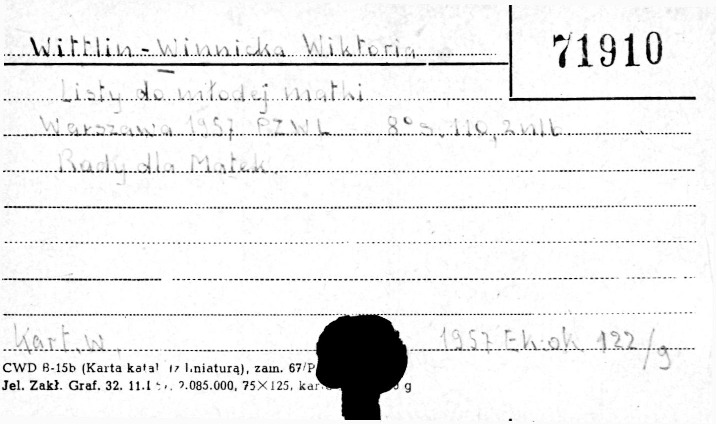 Wittlin-Winnicka Wiktoria
71910
Listy do młodej matki
Warszawa 1957 PZWL 8° s. 110, 2 nlb
Rady dla Matek.
Kart. w.
1957 Eh. ok. 122/g
CWD B-15b (Karta katal z liniaturą), zam. 67/P
Jel. Zakł. Graf. 32. 2.085.000, 75×125, g